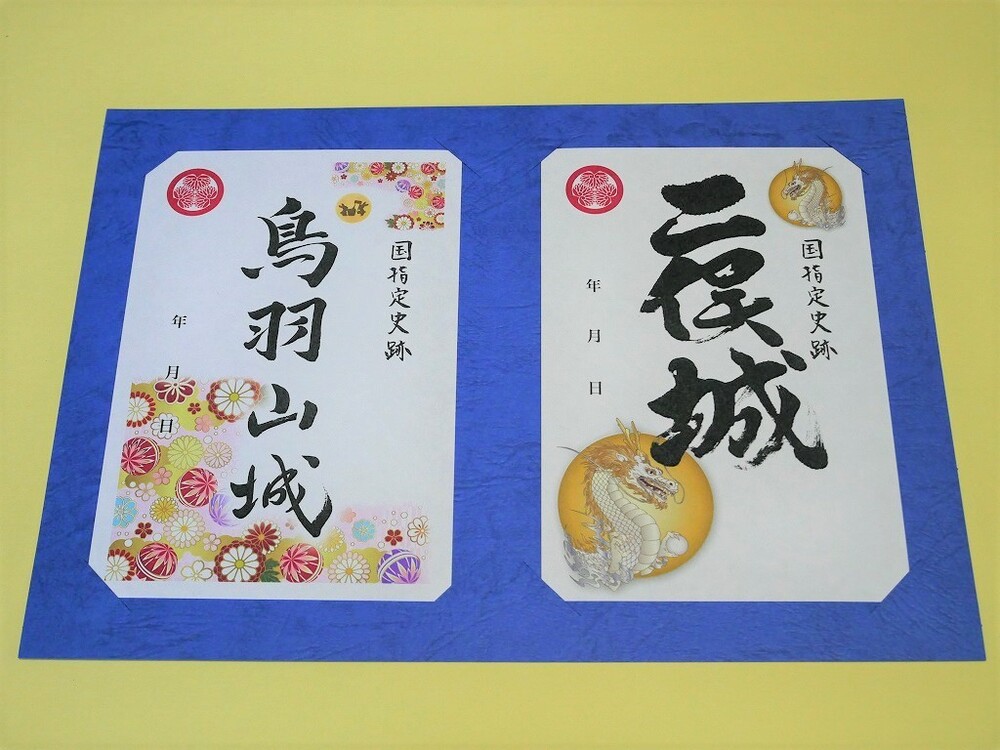 国指定史跡
鳥羽山城
年月日
国指定史跡
二俣城
年月日